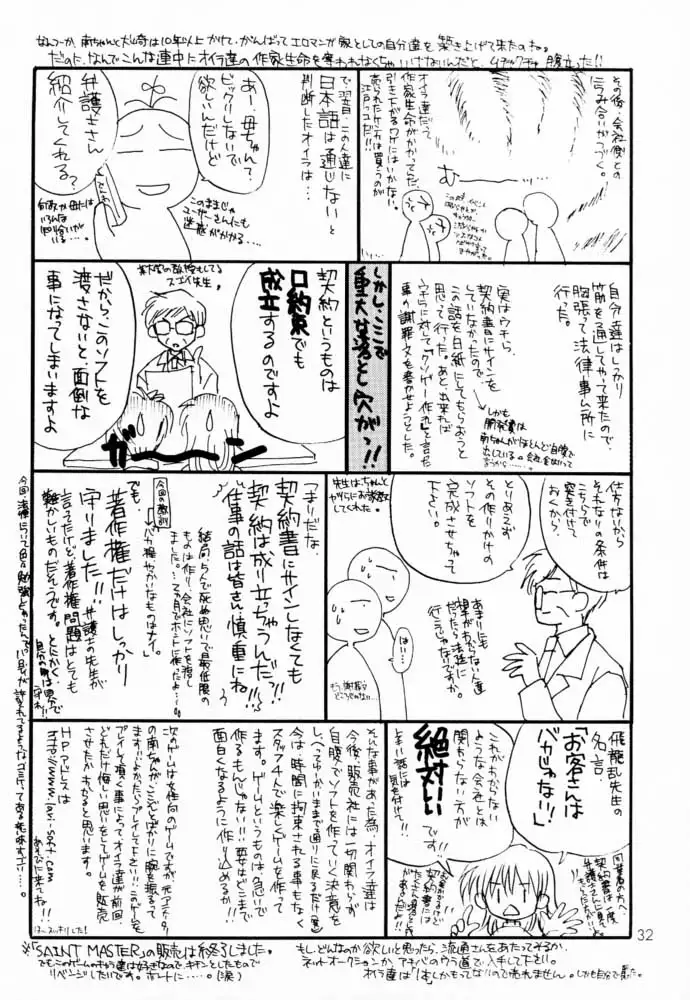 なんつーか、南ちゃんと犬崎は10年以上かけて、がんばってエロマンガ家としての自分達を築き上げて来たのね。
だのに、なんでこんな連中にオイラ達の作家生命を奪われなくちゃいけないんだと、ムチャクチャ腹立った!!
その後、会社側との
にらみ合いがつづく。
むーーッ…
オイラ達だって
作家生命がかかってんだ。
引き下がるワケにはいかない。
売られたケンカは買うのが
江戸っコだ!!
で、翌日、この人達に
日本語は通じないと
判断したオイラは…
あー、母ちゃん?
ビックリしないで
欲しいんだけど
弁護士さん
紹介してくれる?
このままじゃ
ユーザーさんにも
迷惑がかかる…
何故か母には
いろんな
知り合いが
いる…。
自分達はしっかり
筋を通してやって来たので、
胸張って法律事ム所に
行った。
実はウチら、
契約書にサインを
していなかったので
この話を白紙にしてもらおうと
思って行った。あと、出来れば
ウチらに対して「クソゲー作家」と言った
事の謝罪文を書かせようとした。
しかも
開発費は
南ちゃんがほとんど自腹で
出している。
しかし、ここで
重大な落とし穴がっ!!
契約というものは
口約束でも
成立するのですよ
某大学の教授もしてる
スゴイ先生。
だから、このソフトを
渡さないと、面倒な
事になってしまいますよ
ガーン
仕方ないから
それなりの条件は
こちらで
突き付けて
おくから、
とりあえず
その作りかけの
ソフトを
完成させちゃって
下さい。
先生はちゃんと
ヤツらにお説教
してくれた。
あまりにも
相手がわからない人達
だったら法廷に
行こうじゃないですか
はい…
もう、謝罪文
どころじゃない…
「まりだな、
契約書にサインしなくても
契約は成り立っちゃうんだっ!!
仕事の話は皆さん、慎重にね!!」
結局、ちんで死ぬ思いで最低限の
ものは作り、会社にソフトを渡し
ました。…2ヵ月でホントに作ったよ…。
今回の教訓
「バカ程やっかいなものはナイ。」
でも、
著作権だけはしっかり
守りました!!
弁護士の先生が
言ってたけど、著作権問題はとても
難かしいものだそうです。とにかく、
自分の身は自分で
守れ!!
飛龍乱先生の
名言。
「お客さんは
バカじゃない!!」
これがわからない
ような会社とは
関わらない方が
絶対いい
です!!
うまい話には
気を付けて!!
同業者の方へ、
契約書は一度
弁護士さんに見て
もらいましょう!!
そんな事があった為、オイラ達は
今後、販売社には一切関わらず、
自腹でソフトを作っていく決意を
しべってゆーか、いままで通りに戻るだけ(笑)
今は、時間に拘束される事もなく
スタッフ4人で楽しくゲームを作って
ます。ゲームというものは、急いで
作るもんじゃない!!要はどこまで
面白くなるように作り込めるか!!
次のゲームは女性向のゲームですが、元アニメーター
の南ちゃんが、ここぞとばかりに腕を振るって
ます。よかったらプレイして下さい!!
プレイして頂く事によってオイラ達が前回、
どれだけ悔しい思いをしてゲームを販売
させたかがわかると思います。
HPアドレスは
http://www.lovi-soft.com
あそびに来てね!!
はーースッキリした!
32
※「SAINT MASTER」の販売は終了しました。
でもこのゲームのキャラ達は好きなので、キチンとしたもので
リベンジしたいです。ホントに…。(涙)
もし、どんなのか欲しいと思ったら、流通さんをあたってみるか、
ネットオークションか、アキバのウラ道で入手して下さい。
オイラ達は1枚しかもってないので売れません。しかも自分で買った。